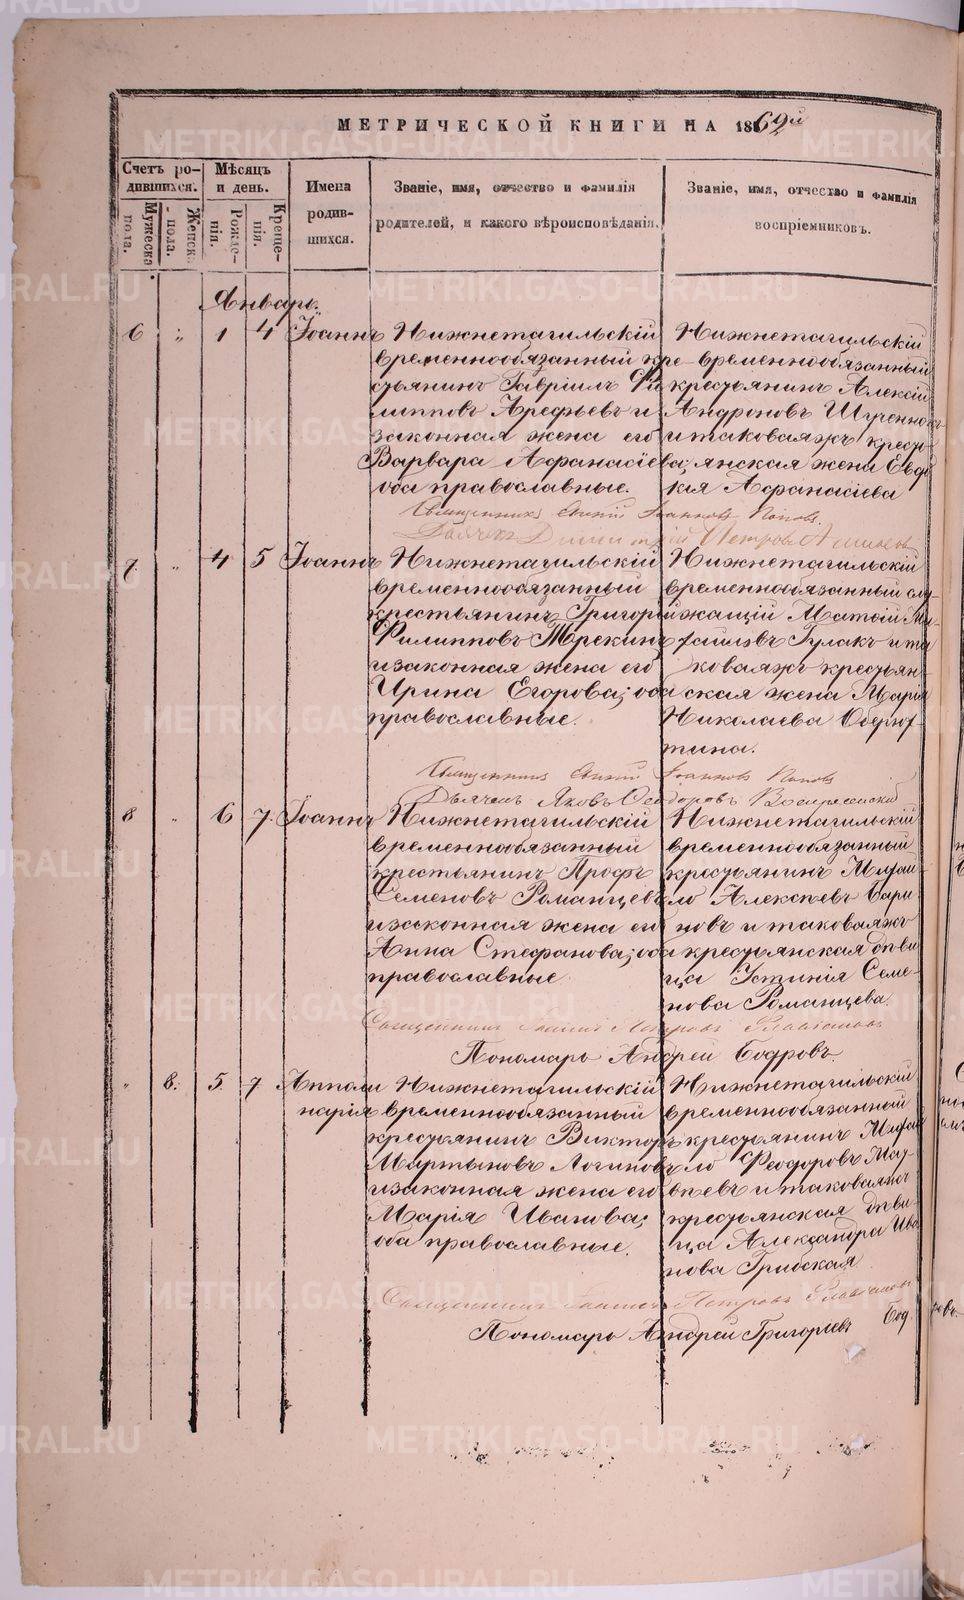 МЕТРИЧЕСКОЙ КНИГИ НА 1862й
Счетъ ро-
дившихся.
Мѣсяцъ
и день.
Имена
родив-
шихся.
Званіе, имя, отчество и фамилія
родителей, и какого вѣроисповѣданія.
Званіе, имя, отчество и фамилія
воспріемниковъ.
Мужеска
пола.
Женска
пола.
Рожде-
нія.
Креще-
нія.
Январь.
6 „ 1 4 Іоаннъ
Нижнетагильскій
временнообязанный кре-
стьянинъ Гавріилъ Фи
липповъ Арефьевъ и
законная жена его
Варвара Афанасіева;
оба православные.
Нижнетагильскій
временнообязанный
крестьянинъ Алексій
Андроновъ
и таковаяжъ кресть-
янская жена Евдо
кія Афанасіева
Священникъ Іоанновъ Поповъ.
Дьячекъ Димитрій Петровъ
7 „ 4 5 Іоаннъ
Нижнетагильскій
временнообязанный
крестьянинъ Григорій
Филипповъ Трекинъ
и законная жена его
Ирина Егорова; оба
православные.
Нижнетагильскій
временнообязанный слу-
жащій Матѳій Ми-
хайловъ Гулакъ и та
коваяжъ крестьян-
ская жена Марія
Николаева Оберют-
тина.
Священникъ Іоанновъ Поповъ
Дьячекъ Яковъ Ѳеодоровъ Воскресенскій
8 „ 6 7. Іоаннъ
Нижнетагильскій
временнообязанный
крестьянинъ Профъ
Семеновъ Романцевъ
и законная жена его
Анна Стефанова; оба
православные
Нижнетагильскій
временнообязанный
крестьянинъ Михаи
ло Алексѣевъ Бари
новъ и таковаяжъ
крестьянская дѣви
ца Устинія Семе-
нова Романцева.
Священникъ Іоаннъ Петровъ
Пономарь Андрей Бодровъ.
„ 8. 5. 7 Апполи
нарія
Нижнетагильскій
временнообязанный
крестьянинъ Викторъ
Мартыновъ Логиновъ
и законная жена его
Марія Иванова;
оба православные.
Нижнетагильскій
временнообязанный
крестьянинъ Михаи
ло Феодоровъ Мат-
вѣевъ и таковаяжъ
крестьянская дѣви
ца Александра Ива
нова Грибская
Священникъ Іоаннъ Петровъ
Пономарь Андрей Григорьевъ Бод ровъ.
METRIKI.GASO-URAL.RU